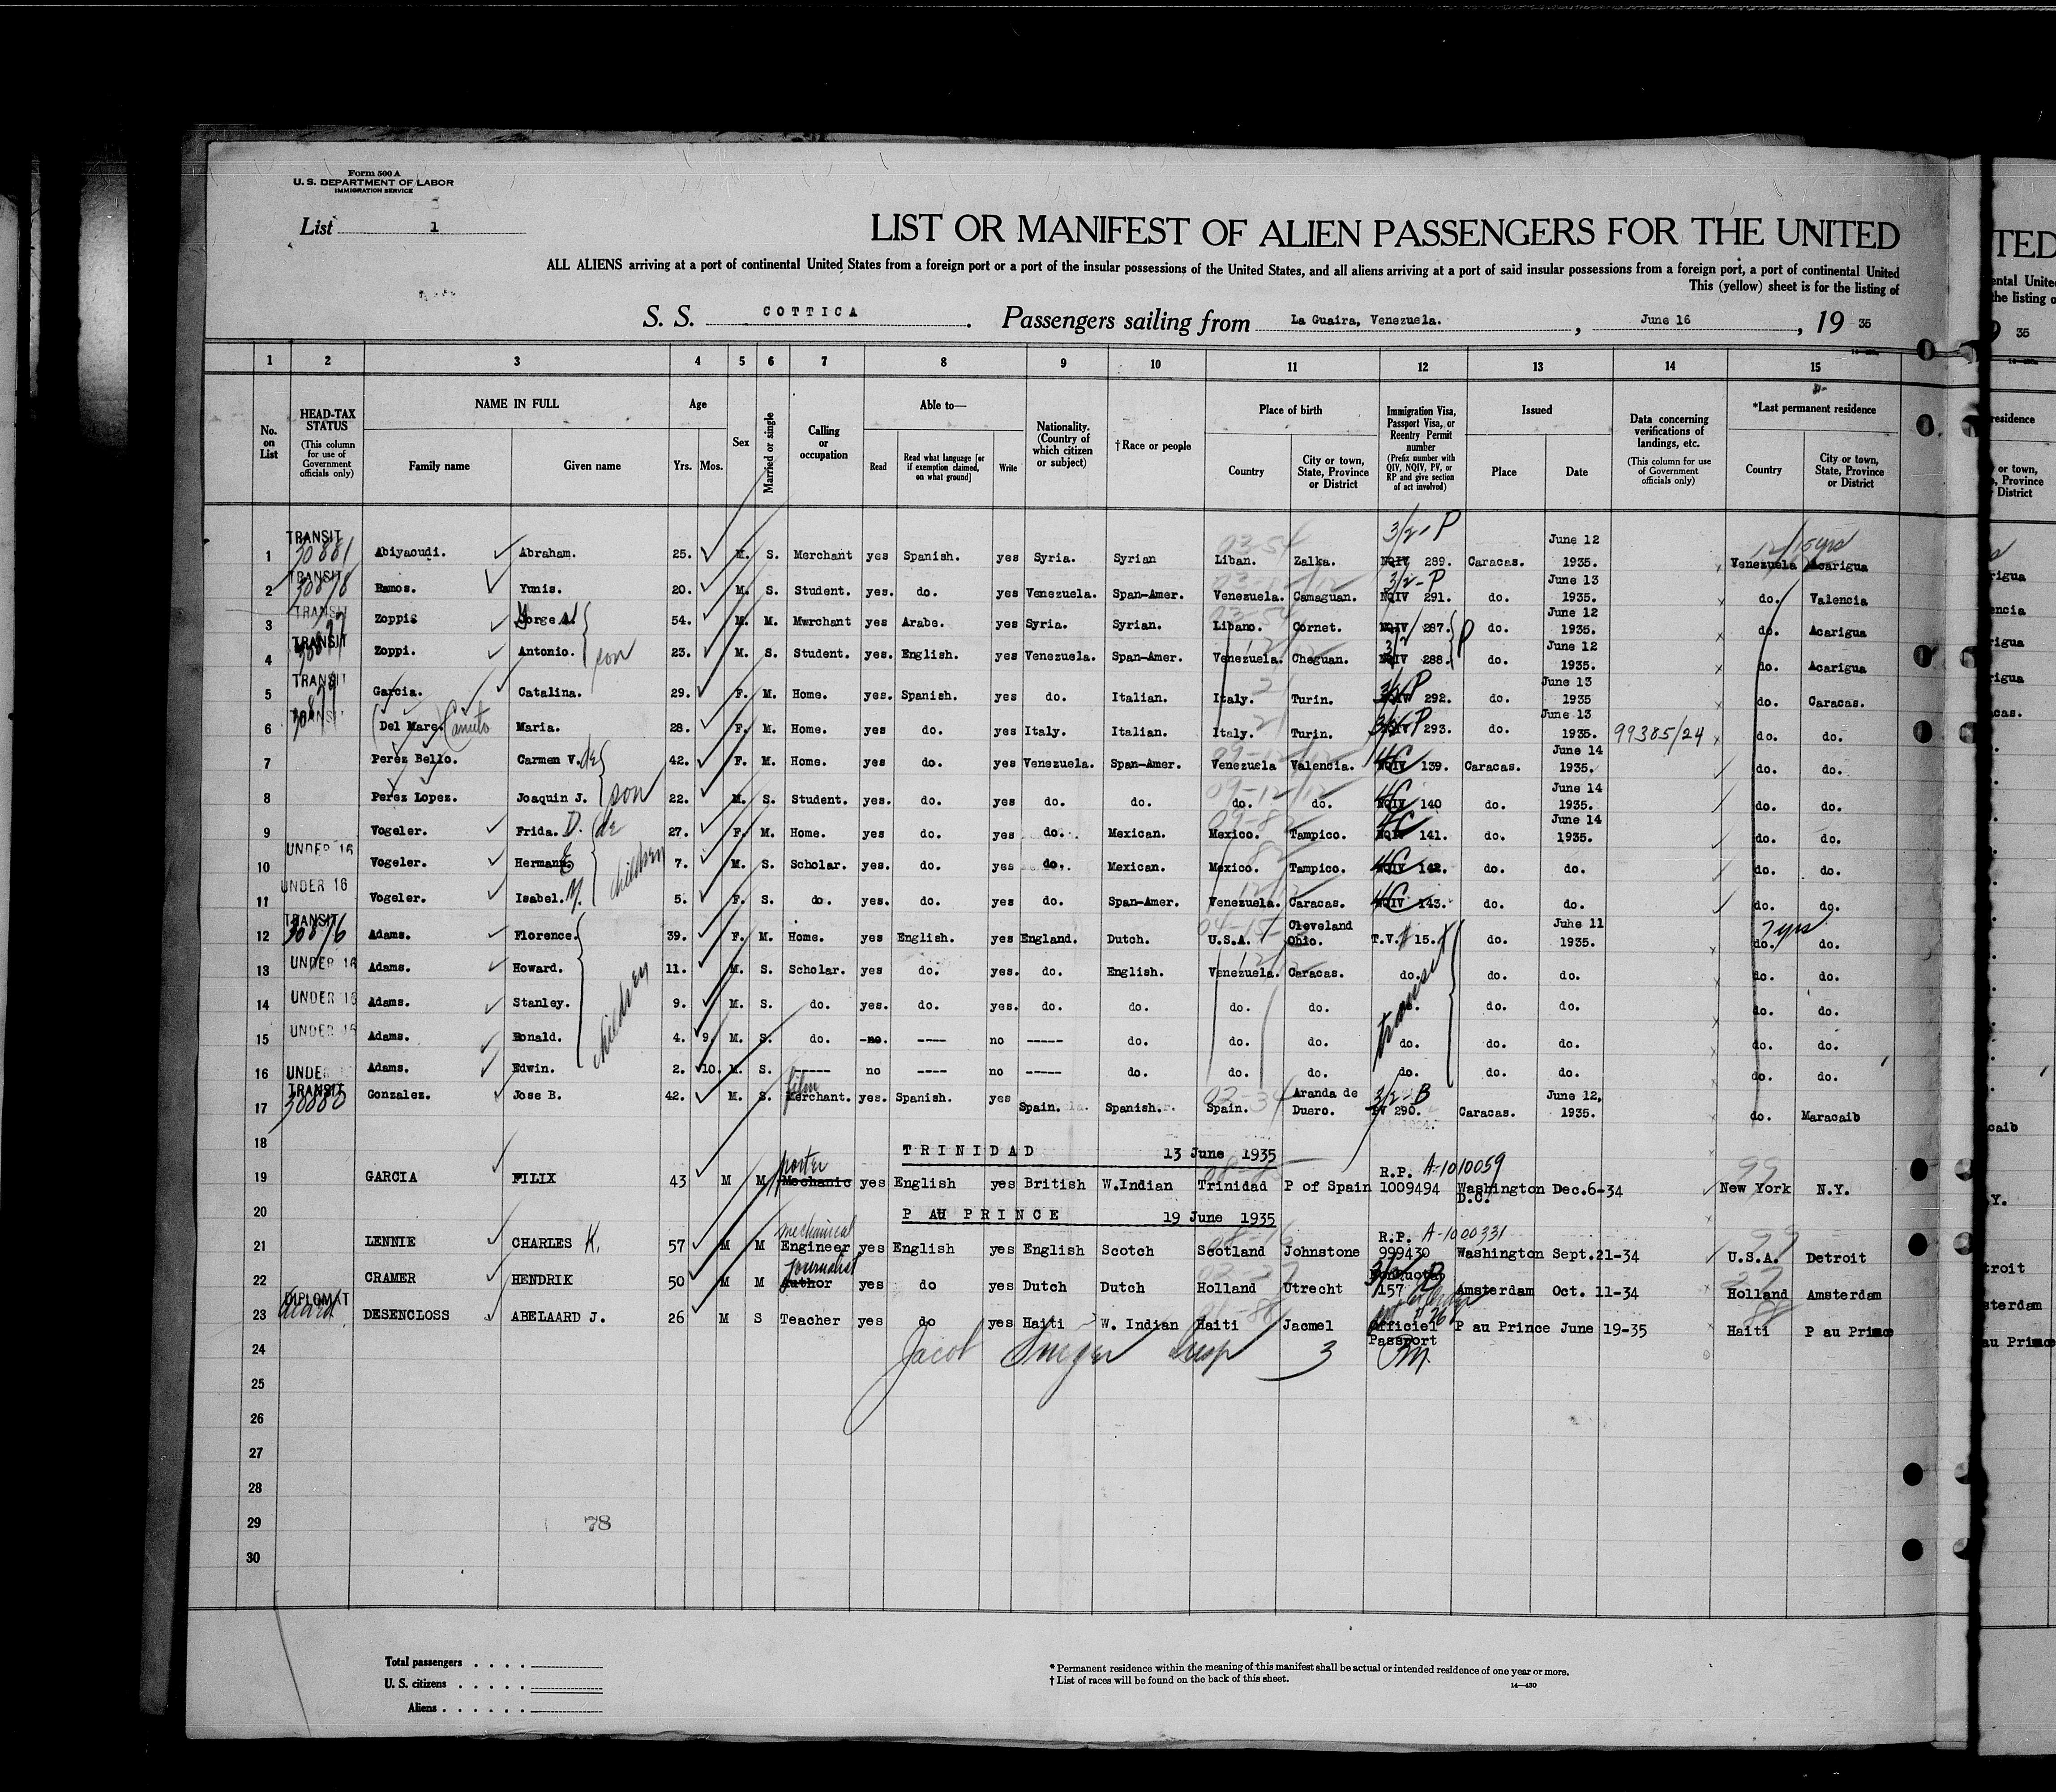 Form 500 A
U. S. DEPARTMENT OF LABOR
IMMIGRATION SERVICE
List 1
LIST OR MANIFEST OF ALIEN PASSENGERS FOR THE UNITED
ALL ALIENS arriving at a port of continental United States from a foreign port or a port of the insular possessions of the United States, and all aliens arriving at a port of said insular possessions from a foreign port, a port of continental United
This (yellow) sheet is for the listing of
S. S. COTTICA. Passengers sailing from La Guaira, Venezuela. , June 16 , 19 35
1 2 3 4 5 6 7 8 9 10 11 12 13 14 15
No. on List
HEAD-TAX STATUS (This column for use of Government officials only)
NAME IN FULL Family name Given name
Age Yrs. Mos.
Sex
Married or single
Calling or occupation
Able to— Read Read what language [or if exemption claimed, on what ground] Write
Nationality. (Country of which citizen or subject)
† Race or people
Place of birth Country City or town, State, Province or District
Immigration Visa, Passport Visa, or Reentry Permit number (Prefix number with QIV, NQIV, PV, or RP and give section of act involved)
Issued Place Date
Data concerning verifications of landings, etc. (This column for use of Government officials only)
*Last permanent residence Country City or town, State, Province or District
1 TRANSIT 30881 Abiyaoudi. Abraham. 25. M. S. Merchant yes Spanish. yes Syria. Syrian Liban. Zalka. 3/2-P NQIV 289. Caracas. June 12 1935. Venezuela Acarigua 15 yrs
2 TRANSIT 30878 Ramos. Yunis. 20. M. S. Student. yes. do. yes Venezuela. Span-Amer. Venezuela. Camaguan. 3/2-P NQIV 291. do. June 13 1935. do. Valencia
3 TRANSIT Zoppi Jorge 54. M. M. Mwrchant yes Arabe. yes Syria. Syrian. Libano. Cornet. NQIV 287. P do. June 12 1935. do. Acarigua
4 TRANSIT Zoppi. Antonio. son 23. M. S. Student. yes. English. yes Venezuela. Span-Amer. Venezuela. Cheguan. NQIV 288. do. June 12 1935. do. Acarigua
5 TRANSIT Garcia. Catalina. 29. F. M. Home. yes. Spanish. yes do. Italian. Italy. Turin. 3/2 P 292. do. June 13 1935 do. Caracas.
6 TRANSIT (Del Mare. Maria. 28. F. M. Home. yes do. yes Italy. Italian. Italy. Turin. P 293. do. June 13 1935. 99385/24 do. do.
7 Perez Bello. Carmen V. de 42. F. M. Home. yes do. yes Venezuela. Span-Amer. Venezuela Valencia. 4C NQIV 139. Caracas. June 14 1935. do. do.
8 Perez Lopez. Joaquin J. son 22. M. S. Student. yes. do. yes do. do. do. do. 4C NQIV 140 do. June 14 1935. do. do.
9 Vogeler. Frida. D. de 27. F. M. Home. yes do. yes do. Mexican. Mexico. Tampico. 4C NQIV 141. do. June 14 1935. do. do.
10 UNDER 16 Vogeler. Hermann E children 7. M. S. Scholar. yes. do. yes do. Mexican. Mexico. Tampico. 4C NQIV 142. do. do. do. do.
11 UNDER 16 Vogeler. Isabel. M. 5. F. S. do. yes. do. yes do. Span-Amer. Venezuela. Caracas. 4C NQIV 143. do. do. do. do.
12 TRANSIT 30876 Adams. Florence. 39. F. M. Home. yes English. yes England. Dutch. U.S.A. Cleveland Ohio. T.V. 15. do. Juhe 11 1935. 7 yrs do. do.
13 UNDER 16 Adams. Howard. 11. M. S. Scholar. yes do. yes. do. English. Venezuela. Caracas. do. do. do. do. do.
14 UNDER 16 Adams. Stanley. children 9. M. S. do. yes. do. yes. do. do. do. do. do. transit do. do. do. do.
15 UNDER 16 Adams. Ronald. 4. 9. M. S. do. -no. ---- no ----- do. do. do. do. do. do. do. do.
16 UNDER Adams. Edwin. 2. 10. M. S. ----- no ---- no ----- do. do. do. do. do. do. do. do.
17 TRANSIT 30880 Gonzalez. Jose B. 42. M. S. film Merchant. yes. Spanish. yes Spain. Spanish. Spain. Aranda de Duero. 3/2-B PV 290. Caracas. June 12, 1935. do. Maracaib
18 TRINIDAD 13 June 1935
19 GARCIA FILIX 43 M M porter Mechanic yes English yes British W.Indian Trinidad P of Spain R.P. A-1010059 1009494 Washington D.C. Dec.6-34 New York N.Y.
20 P AU PRINCE 19 June 1935
21 LENNIE CHARLES K. 57 M M mechanical Engineer yes English yes English Scotch Scotland Johnstone R.P. A-1000331 999430 Washington Sept.21-34 U.S.A. Detroit
22 CRAMER HENDRIK 50 M M Journalist Author yes do yes Dutch Dutch Holland Utrecht 157 Amsterdam Oct. 11-34 Holland Amsterdam
23 DIPLOMAT DESENCLOSS ABELAARD J. 26 M S Teacher yes do yes Haiti W. Indian Haiti Jacmel Officiel Passport P au Prince June 19-35 Haiti P au Prince
24
25
26
27
28
29 78
30
Total passengers
U. S. citizens
Aliens
* Permanent residence within the meaning of this manifest shall be actual or intended residence of one year or more.
† List of races will be found on the back of this sheet.
14—430